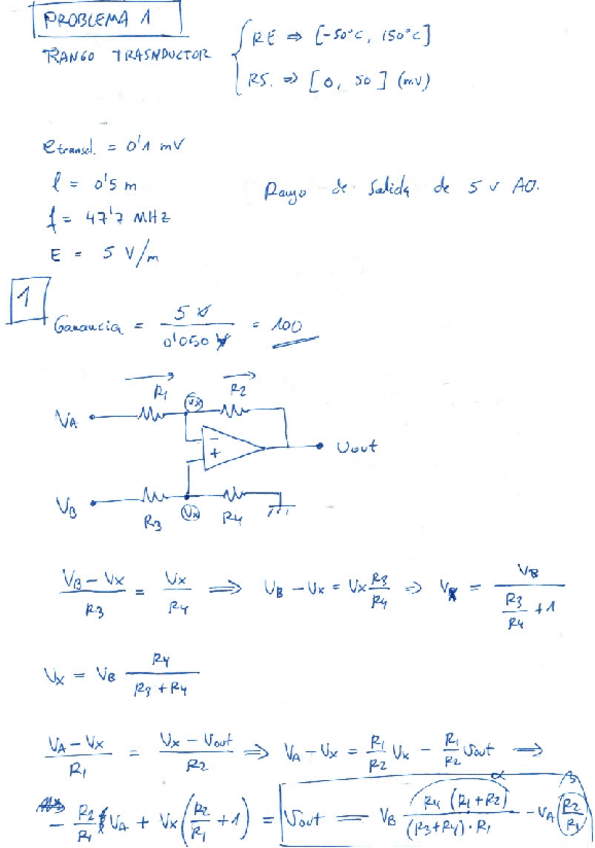 PROBLEMA 1
RANGO TRASNDUCTOR { RE ⇒ [-50°C, 150°C]
RS. ⇒ [0, 50] (mV)
e transd. = 0'1 mV
l = 0'5 m
Rango de salida de 5 V AO.
f = 47'7 MHz
E = 5 V/m
1
Ganancia = 5 V / 0'050 V = 100
R1 Vx R2
VA
- +
Vout
VB
R3 Vx R4
(VB - Vx) / R3 = Vx / R4 ⇒ VB - Vx = Vx R3/R4 ⇒ Vx = VB / (R3/R4 + 1)
Vx = VB R4 / (R3 + R4)
(VA - Vx) / R1 = (Vx - Vout) / R2 ⇒ VA - Vx = R1/R2 Vx - R1/R2 Vout ⇒
α
- R2/R1 VA + Vx (R2/R1 + 1) = Vout = VB R4 (R1 + R2) / ((R3 + R4) · R1) - VA (R2/R1)